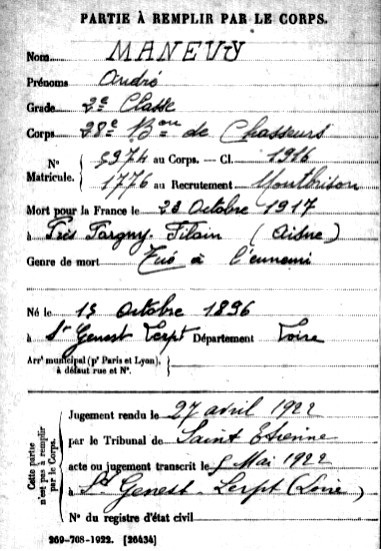 PARTIE À REMPLIR PAR LE CORPS.
Nom MANEVY
Prénoms André
Grade 2e Classe
Corps 28e Bon de Chasseurs
N° Matricule. 5974 au Corps. — Cl. 1916
1776 au Recrutement Montbrison
Mort pour la France le 23 Octobre 1917
à Près Pargny-Filain (Aisne)
Genre de mort Tué à l'ennemi
Né le 15 Octobre 1896
à St Genest Lerpt Département Loire
Arrt municipal (pr Paris et Lyon), à défaut rue et N°.
Cette partie n'est pas à remplir par le Corps.
Jugement rendu le 27 avril 1922
par le Tribunal de Saint Etienne
acte ou jugement transcrit le 5 Mai 1922
à St Genest-Lerpt (Loire)
N° du registre d'état civil
269-708-1922. [26434]